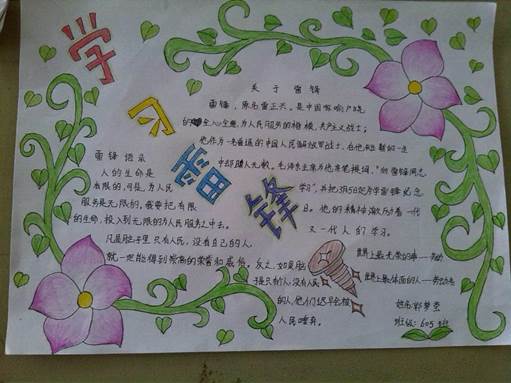 学习雷锋
关于雷锋
雷锋，原名雷正兴。是中国家喻户晓
的全心全意为人民服务的楷模，共产主义战士；
他作为一名普通的中国人民解放军战士，在他短暂的一生
中却助人无数。毛泽东主席为他亲笔题词，“向雷锋同志
学习”，并把3月5日定为学雷锋纪念
日。他的精神激励着一代
又一代人们学习。
雷锋语录
人的生命是
有限的，可是，为人民
服务是无限的，我要把有限
的生命，投入到无限的为人民服务之中去。
凡是脑子里只有人民，没有自己的人，
就一定能得到崇高的荣誉和威信。反之，如果脑
子里只有个人，没有人民
的人，他们迟早会被
人民唾弃。
世界上最光荣的事——劳动
世界上最体面的人——劳动者
姓名：彭梦
班级：605班